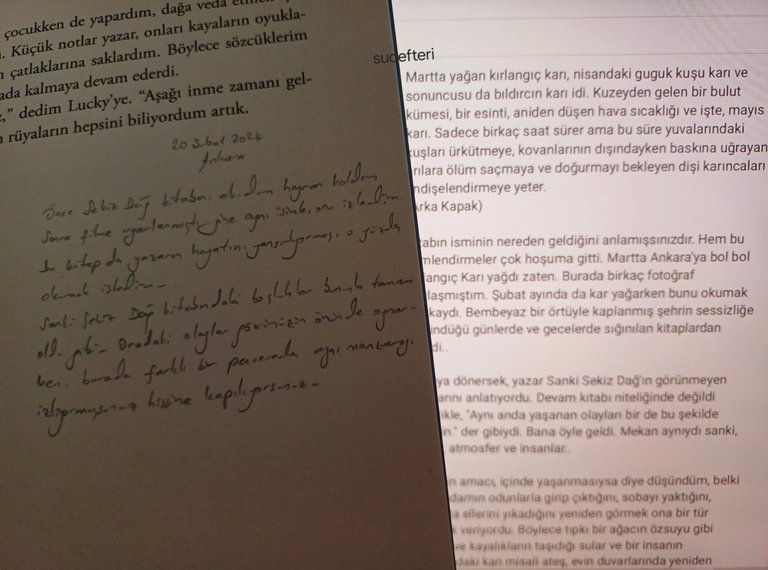 çocukken de yapardım, dağa veda
Küçük notlar yazar, onları kayaların oyukla-
çatlaklarına saklardım. Böylece sözcüklerim
ada kalmaya devam ederdi.
," dedim Lucky'ye. "Aşağı inme zamanı gel-
rüyaların hepsini biliyordum artık.
20 Şubat 2024
Ankara
Önce Sekiz Dağ kitabını okudum hayran kaldım
Sonra filme uyarlanmıştı yine aynı isimle, onu izledim.
Bu kitap da yazarın hayatını yansıtıyormuş, o yüzden
okumak istedim -
Sanki Sekiz Dağ kitabındaki boşluklar bununla tamam
oldu gibi - Oradaki olaylar gözünüzün önünde oynar-
ken, burada farklı bir pencereden aynı manzarayı
izliyormuşsunuz hissine kapılıyorsunuz -
sudefteri
Martta yağan kırlangıç karı, nisandaki guguk kuşu karı ve
sonuncusu da bıldırcın karı idi. Kuzeyden gelen bir bulut
kümesi, bir esinti, aniden düşen hava sıcaklığı ve işte, mayıs
karı. Sadece birkaç saat sürer ama bu süre yuvalarındaki
kuşları ürkütmeye, kovanlarının dışındayken baskına uğrayan
rılara ölüm saçmaya ve doğurmayı bekleyen dişi karıncaları
ndişelendirmeye yeter.
rka Kapak)
tabın isminin nereden geldiğini anlamışsınızdır. Hem bu
mlendirmeler çok hoşuma gitti. Martta Ankara'ya bol bol
langıç Karı yağdı zaten. Burada birkaç fotoğraf
laşmıştım. Şubat ayında da kar yağarken bunu okumak
kaydı. Bembeyaz bir örtüyle kaplanmış şehrin sessizliğe
ndüğü günlerde ve gecelerde sığınılan kitaplardan
di..
ya dönersek, yazar Sanki Sekiz Dağ'ın görünmeyen
arını anlatıyordu. Devam kitabı niteliğinde değildi
ikle, "Aynı anda yaşanan olayları bir de bu şekilde
n." der gibiydi. Bana öyle geldi. Mekan aynıydı sanki,
atmosfer ve insanlar..
n amacı, içinde yaşanmasıysa diye düşündüm, belki
damın odunlarla girip çıktığını, sobayı yaktığını,
a ellerini yıkadığını yeniden görmek ona bir tür
k veriyordu. Böylece tıpkı bir ağacın özsuyu gibi
ve kayalıkların taşıdığı sular ve bir insanın
daki kan misali ateş, evin duvarlarında yeniden